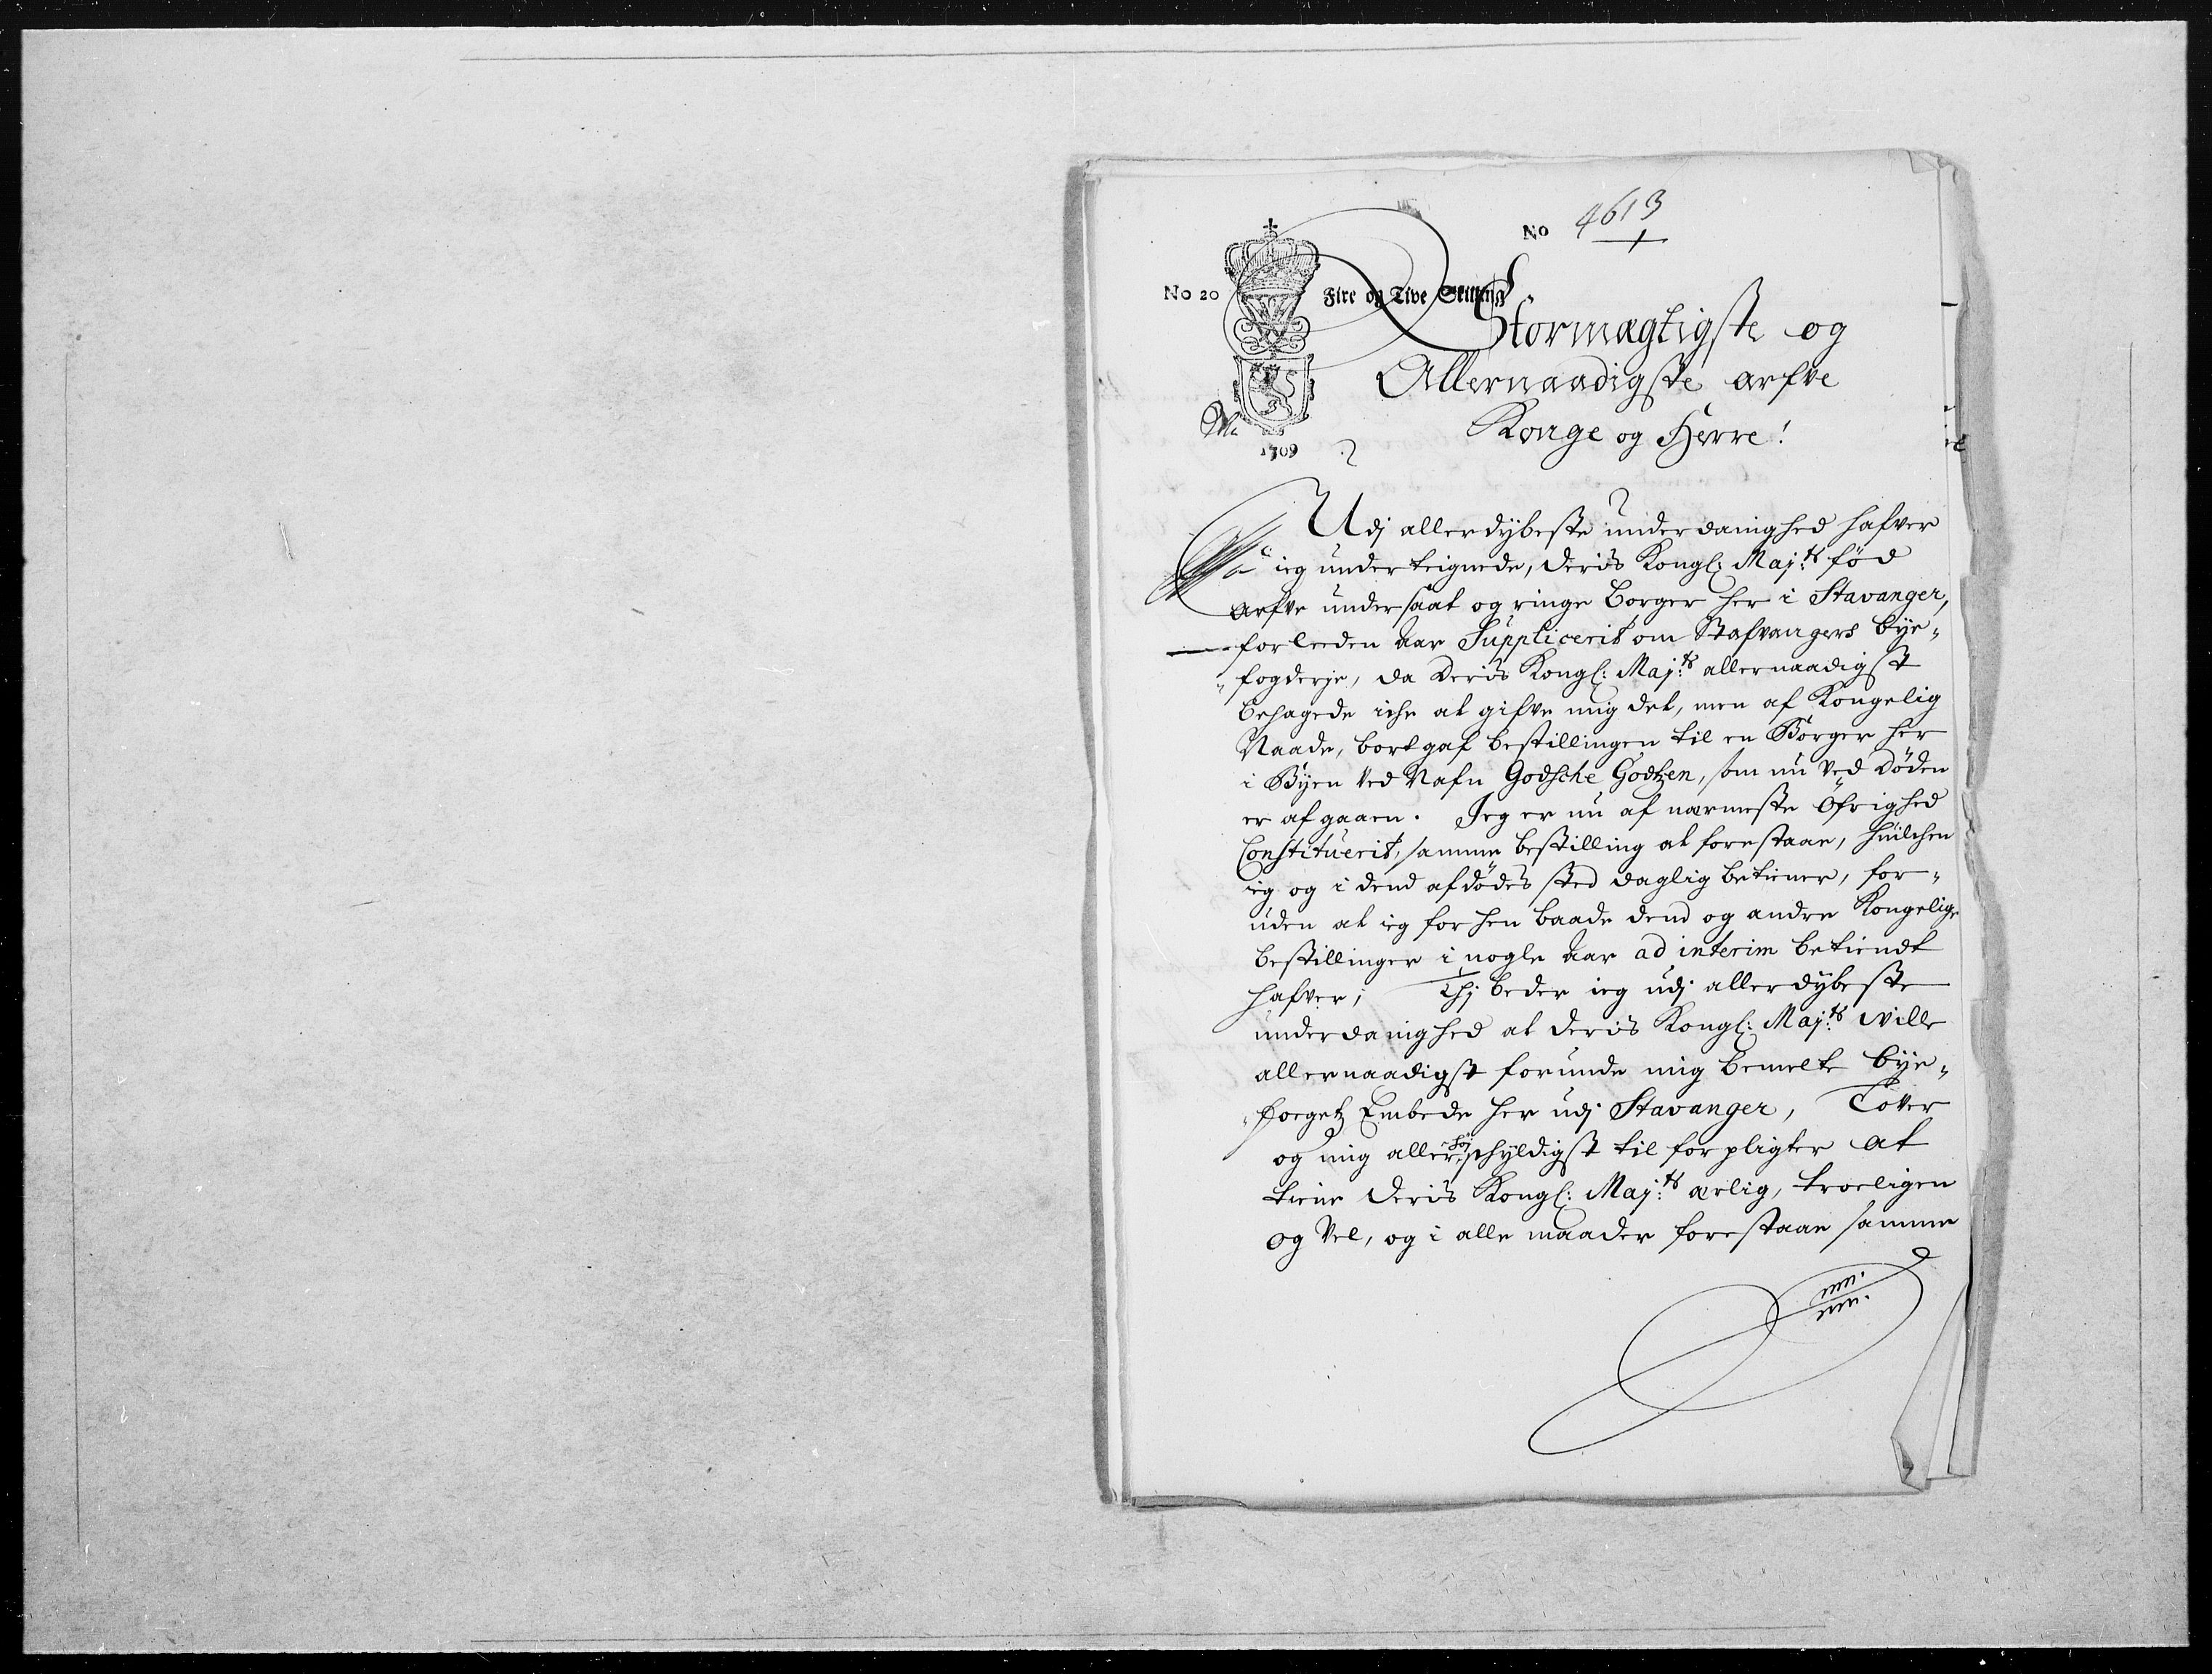 No 4613
No 20 Fire og Tive Skilling
Stormægtigste og
Allernaadigste arfve
Konge og Herre!
1709
Udj allerdybeste underdanighed hafver
ieg underteignede, deris Kongl: Maj:ts fød
arfve undersaat og ringe borger her i Stavanger,
forleeden aar Supplicerit om Stafvangers bÿe„
„fogderje, da deris Kongl: Maj:ts allernaadigst
behagede iche at gifve mig det, men af Kongelig
Naade, bortgaf bestillingen til en Borger her
i Byen ved Nafn Godsche Godtzen, som nu ved døden
er afgaaen. Jeg er nu af nærmeste Øfrighed
Constituerit, samme bestilling at forestaae, huilchen
ieg og i dend afdødes sted daglig betiener, for„
uden at ieg forhen baade dend og andre Kongelige
bestillinger i nogle aar ad interim betiendt
hafver; Thj beder ieg udj allerdybeste
underdanighed at deris Kongl: Maj:ts wille
allernaadigst forunde mig bemelte bÿe„
„foegetz Embede her udj Stavanger, Lover
og mig allerhøjschyldigst til forpligter at
tiene deris Kongl: Maj:ts ærlig, troeligen
og vel, og i alle maader forestaae samme